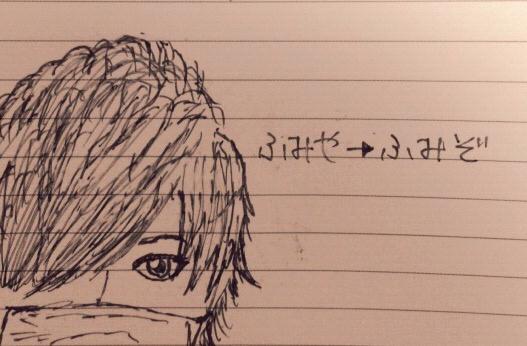 ふみや→ふみぞ